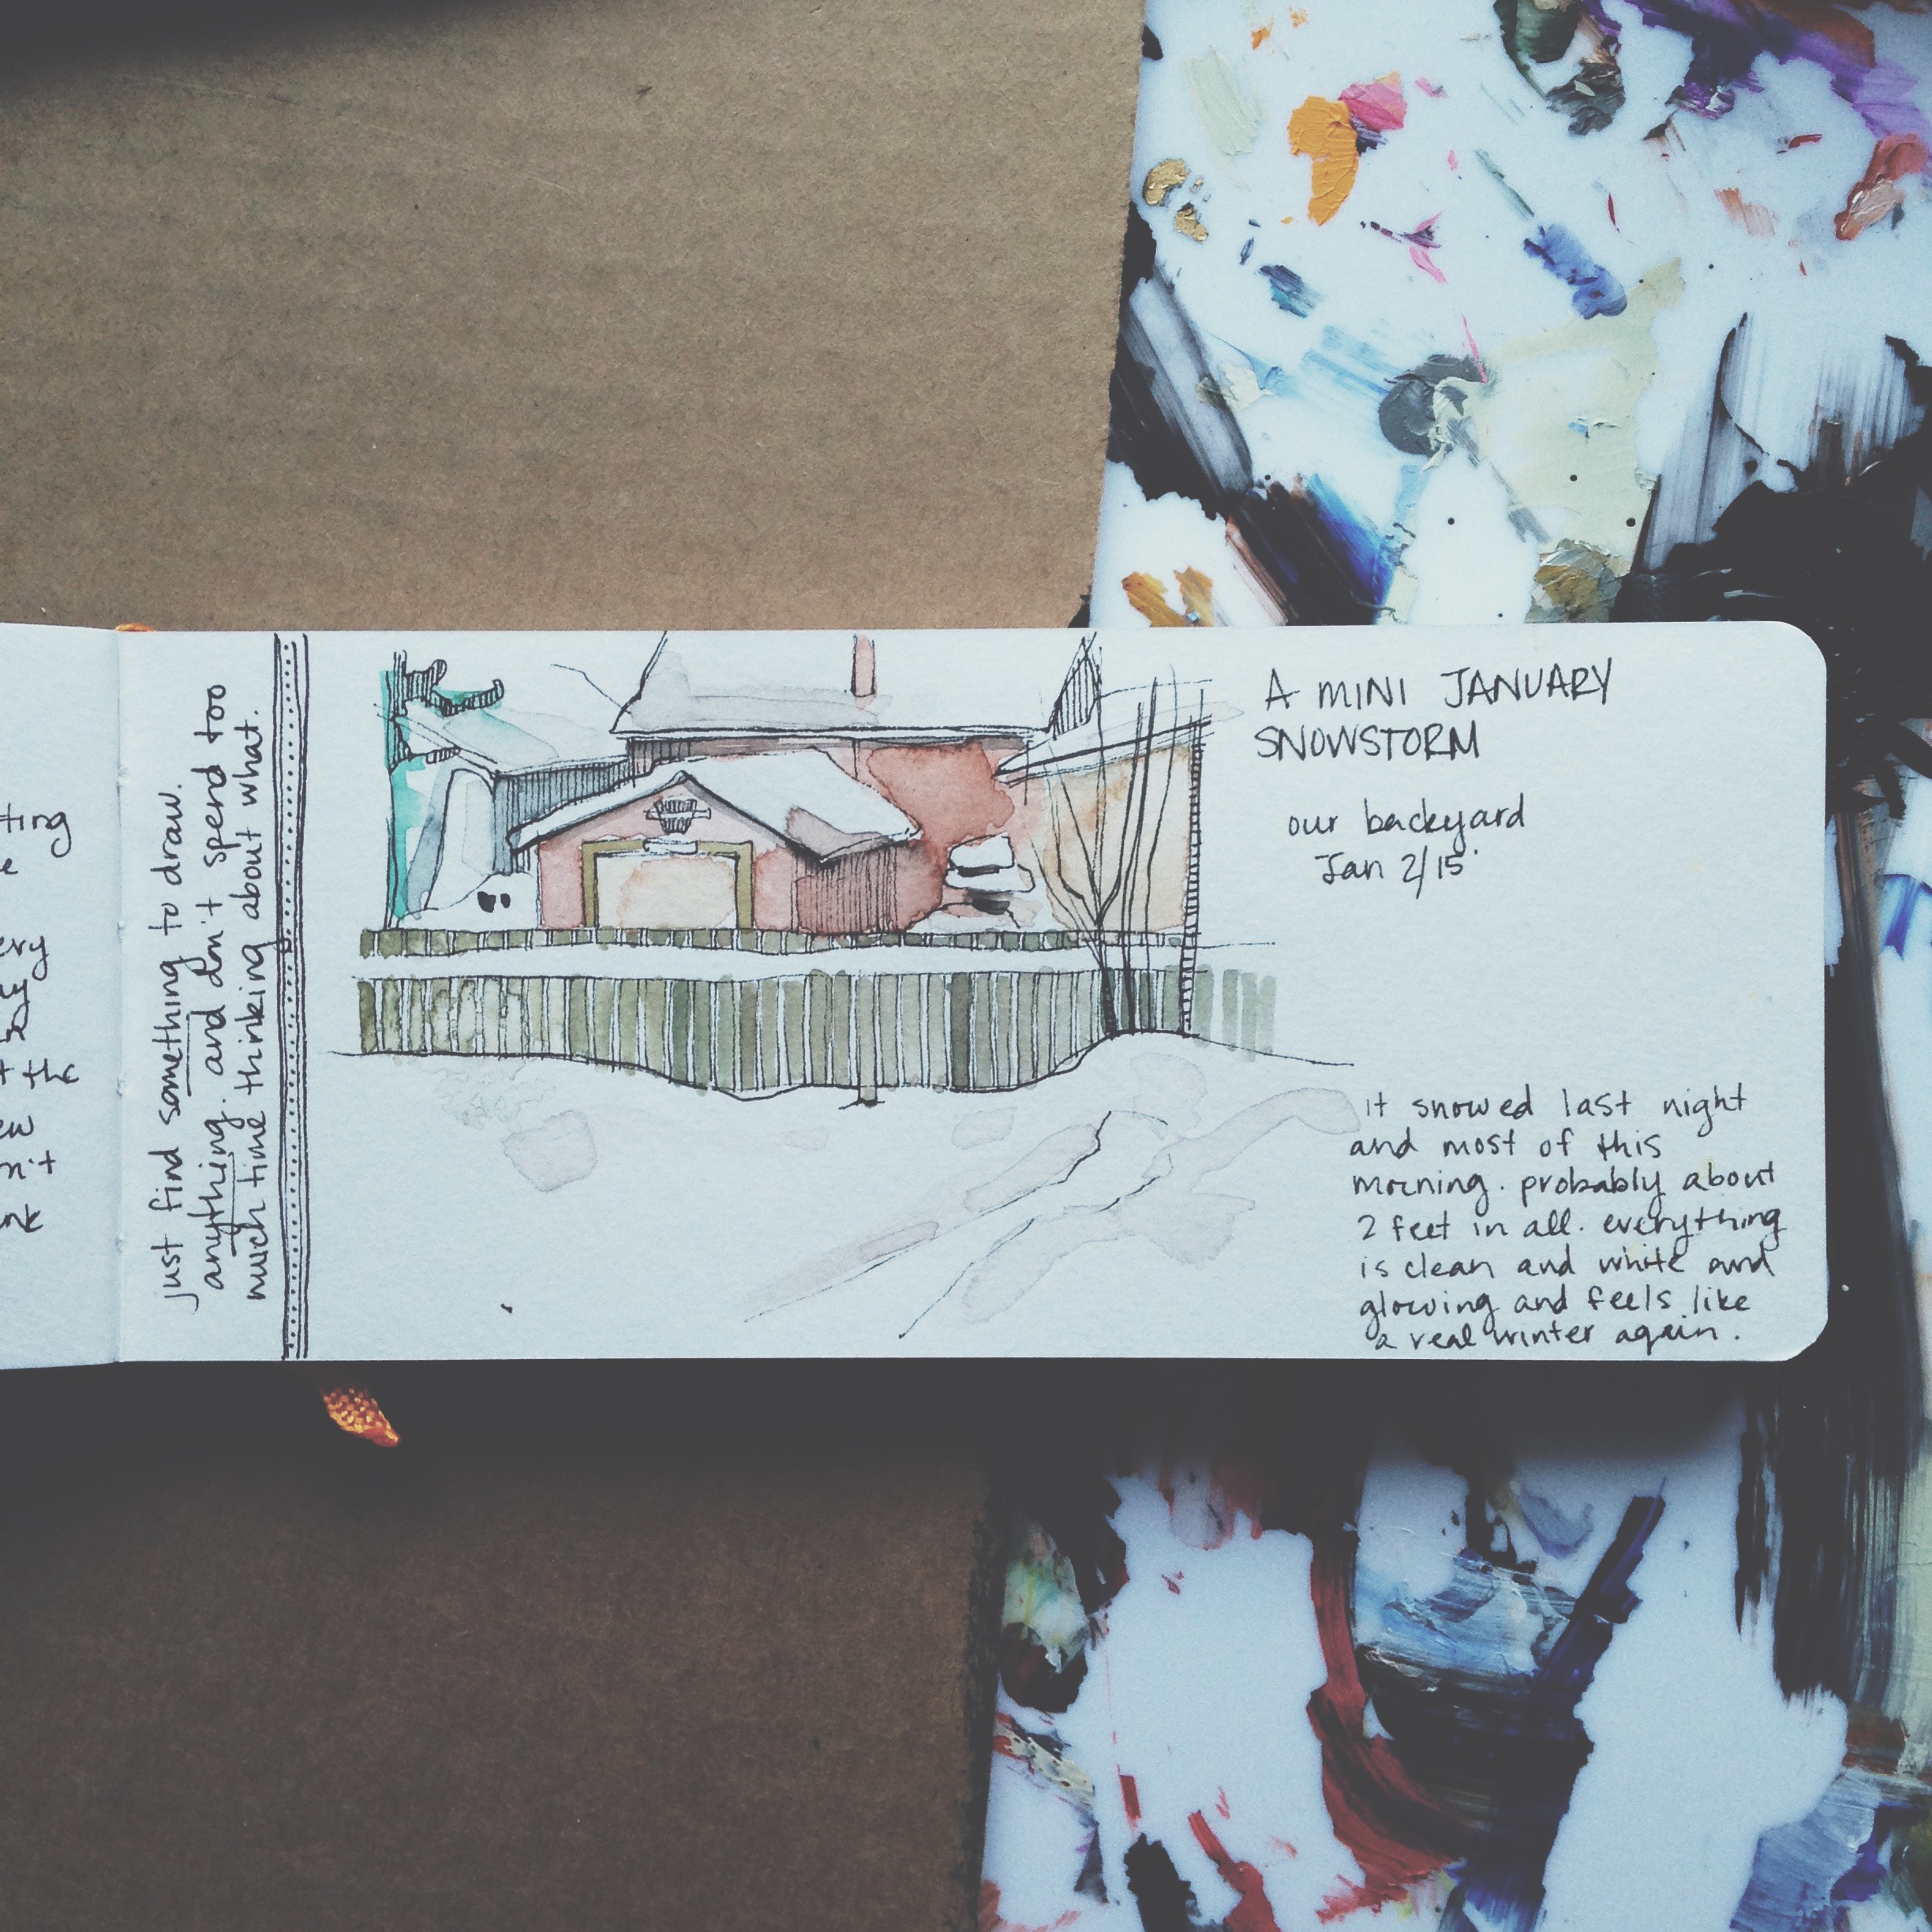 ting
e
ery
t the
ew
n't
nk
just find something to draw.
anything. and don't spend too
much time thinking about what.
A MINI JANUARY
SNOWSTORM
our backyard
Jan 2/15
it snowed last night
and most of this
morning. probably about
2 feet in all. everything
is clean and white and
glowing and feels like
a real winter again.